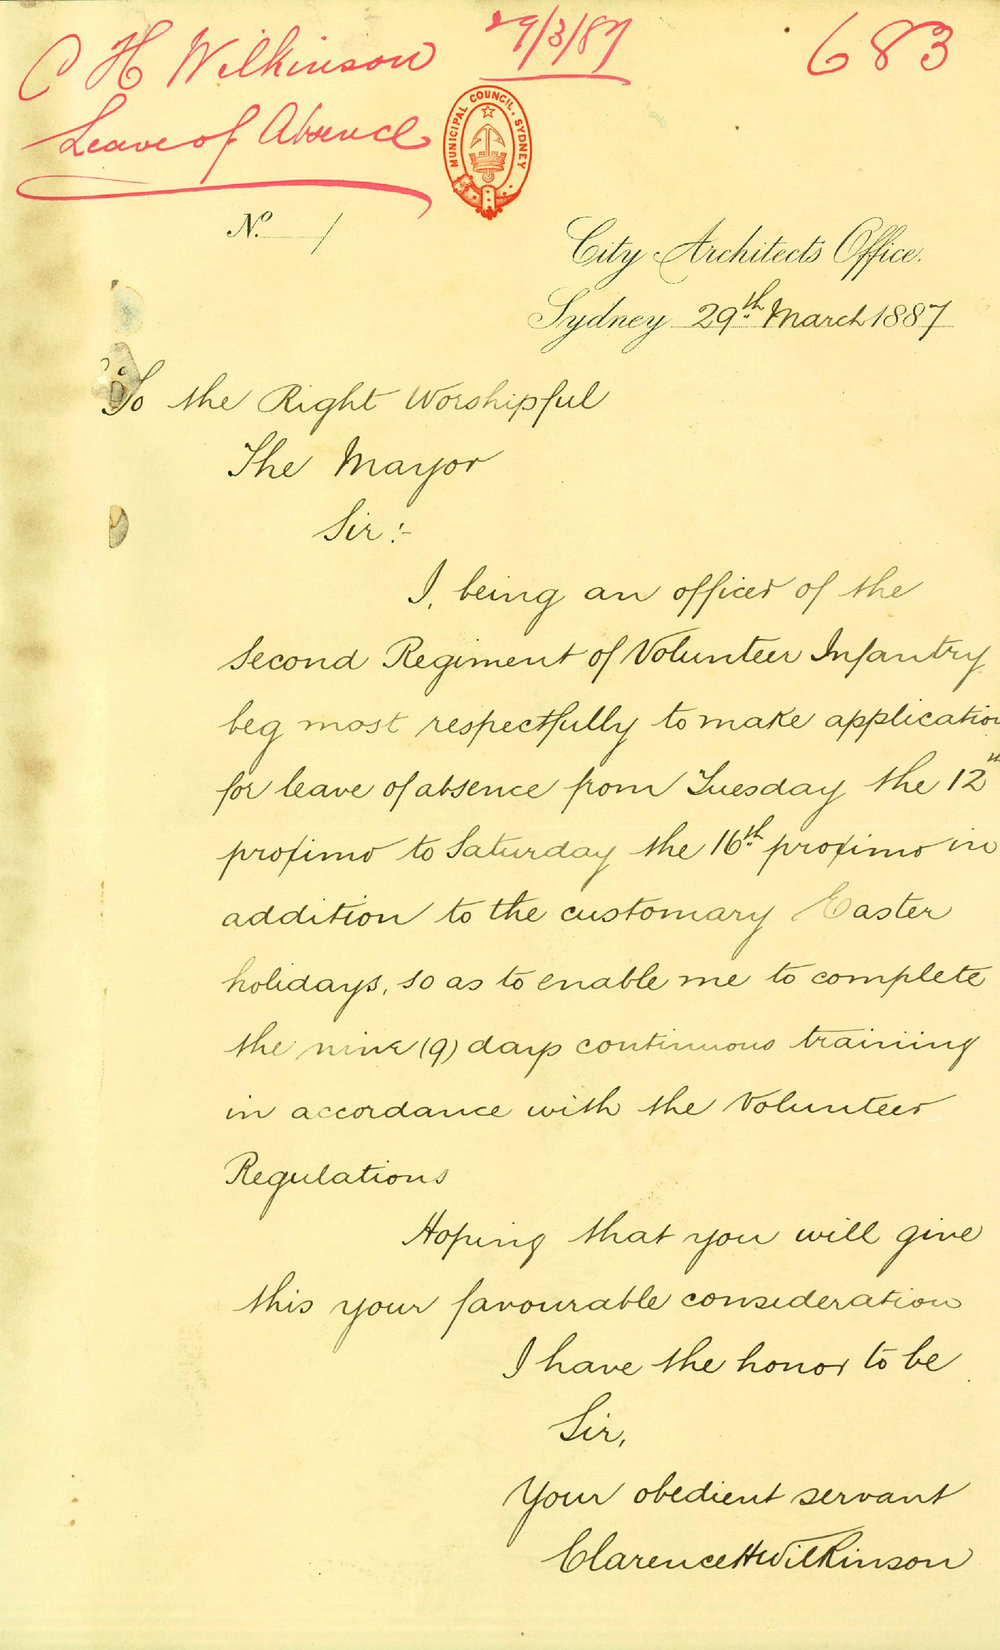 C H Wilkinson
Leave of Absence
29/3/87
683
MUNICIPAL COUNCIL, SYDNEY
No. /
City Architects Office.
Sydney 29th March 1887
To the Right Worshipful
The Mayor
Sir:-
I, being an officer of the
Second Regiment of Volunteer Infantry
beg most respectfully to make application
for leave of absence from Tuesday the 12th
proximo to Saturday the 16th proximo in
addition to the customary Easter
holidays, so as to enable me to complete
the nine (9) days continuous training
in accordance with the Volunteer
Regulations
Hoping that you will give
this your favourable consideration
I have the honor to be
Sir,
Your obedient servant
Clarence H Wilkinson